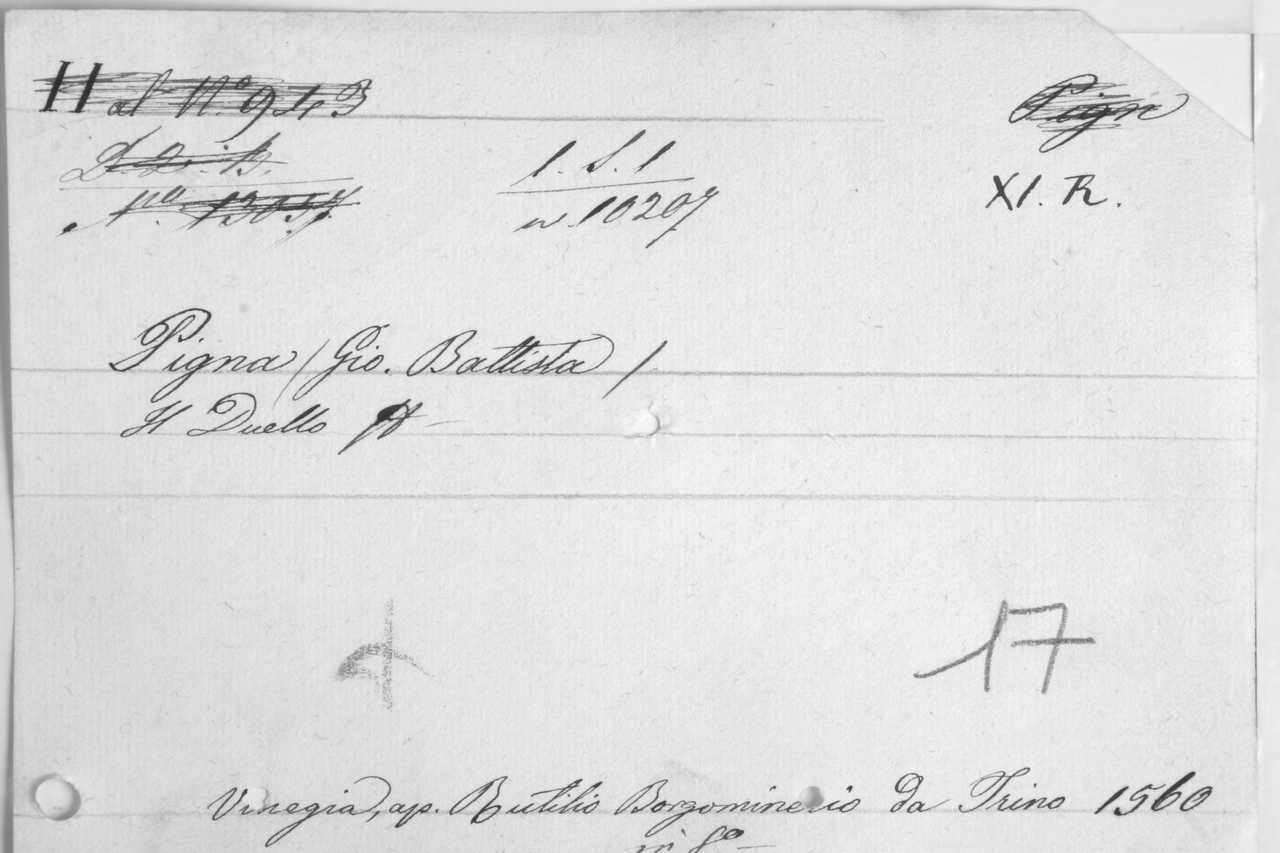 H al N.° 943
Pign
D. D. B.
I. S. 1
N.° 13057.
w. 10207
XI. R.
Pigna (Gio. Battista) /
Il Duello
17
Vinegia, ap. Rutilio Borgominerio da Trino 1560
in 8°